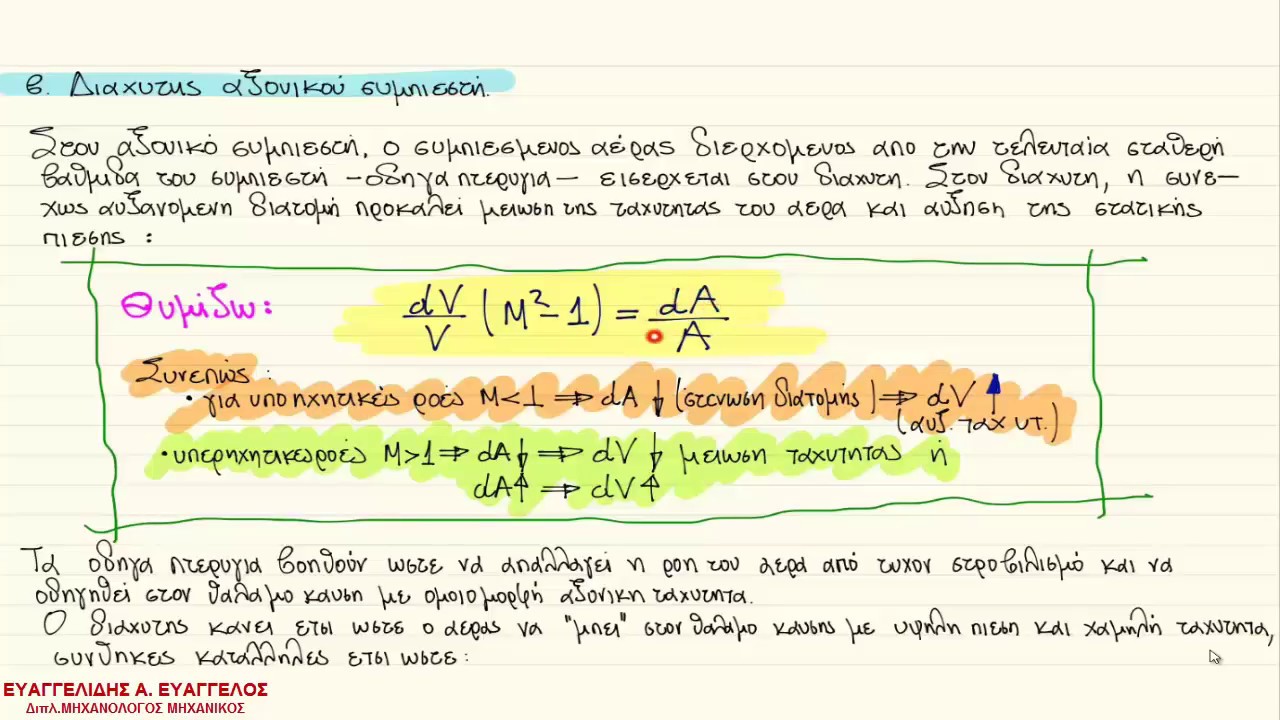 β. Διαχυτης αξονικού συμπιεστή.
Στον αξονικό συμπιεστή, ο συμπιεσμενος αέρας διερχομενος απο την τελευταία σταθερή
βαθμιδα του συμπιεστή -οδηγα πτερυγια- εισερχεται στον διαχυτη. Στον διαχυτη, η συνε-
χως αυξανομενη διατομή προκαλεί μειωση της ταχυτητας του αερα και αύξηση της στατικής
πιεσης :
Θυμίζω: dV/V (M²-1) = dA/A
Συνεπώς :
• για υποηχητικές ροές M<1 ⇒ dA ↓ (στενωση διατομής) ⇒ dV ↑
(αυξ. ταχυτ.)
• υπερηχητικες ροές M>1 ⇒ dA↓ ⇒ dV ↓ μειωση ταχυτητας ή
dA↑ ⇒ dV↑
Τα οδηγα πτερυγια βοηθούν ωστε να απαλλαγεί η ροη του αερα από τυχον στροβιλισμό και να
οδηγηθεί στον θαλαμο καυση με ομοιομορφή αξονικη ταχυτητα.
Ο διαχυτης κανει ετσι ωστε ο αερας να "μπει" στον θαλαμο καυσης με υψηλη πιεση και χαμηλή ταχυτητα,
συνθηκες καταλληλες ετσι ωστε:
ΕΥΑΓΓΕΛΙΔΗΣ Α. ΕΥΑΓΓΕΛΟΣ
Διπλ.ΜΗΧΑΝΟΛΟΓΟΣ ΜΗΧΑΝΙΚΟΣ